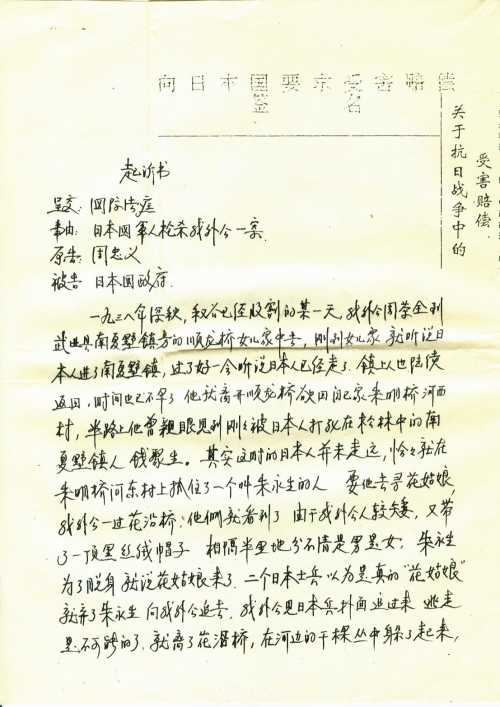 向日本国要求受害赔偿
签名
关于抗日战争中的
受害赔偿
起诉书
呈交:国际法庭
事由:日本国军人枪杀我外公一案.
原告:周忠义
被告 日本国政府.
一九三八年深秋,秋谷已经收割的某一天,我外公周荣金到
武进县南夏墅镇旁的顺龙桥女儿家中去,刚到女儿家 就听说日
本人进了南夏墅镇,过了好一会听说日本人已经走了.镇上人也陆续
返回,时间也已不早了 他就离开顺龙桥欲回自己家朱明桥河西
村,半路上他曾亲眼见到刚刚被日本人打死在松林中的南
夏墅镇人 钱聚生。其实这时的日本人并未走远,恰恰就在
朱明桥河东村上抓住了一个叫朱永生的人 要他去寻花姑娘,
我外公一过花沿桥:他们就看到了 由于我外公人较矮,又带
了一顶黑丝绒帽子 相隔半里地分不清是男是女;朱永生
为了脱身 就说花姑娘来了.二个日本士兵以为是真的“花姑娘”
就弃了朱永生 向我外公追去.我外公见日本兵扑面追过来 逃走
是不可能的了.就离了花沿桥,在河边的干棵丛中躲了起来,